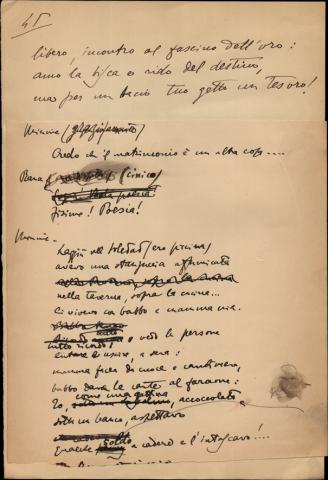 45
libero, incontro al fascino dell'oro:
amo la bisca e rido del destino,
ma per un bacio tuo getto un tesoro!
Minnie
Credo che il matrimonio è un altra cosa....
Rance (cinico)
Poesia!
Minnie -
Laggiù nel Soledad, ero piccina,
avevo una stanzuccia affumicata
nella taverna, sopra la cucina...
Ci vivevo co babbo e mamma mia.
tutto ricordo: vedo le persone
entrare e uscire, a sera:
mamma facea da cuoca e cantiniera,
babbo dava le carte al faraone:
Io, come una gattina accoccolata
sotto un banco, aspettavo
qualche soldo a cadere e l'intascavo!....